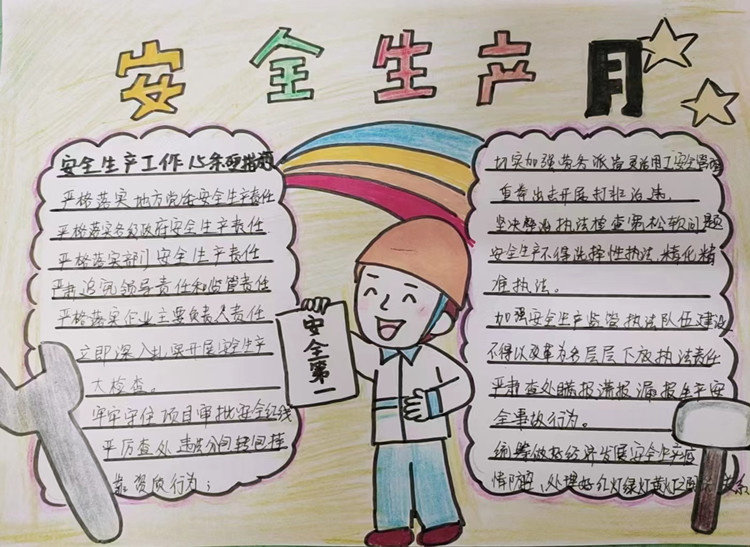 安全生产月
安全生产工作15条硬措施
严格落实地方党委安全生产责任
严格落实各级政府安全生产责任
严格落实部门安全生产责任
严肃追究领导责任和监管责任
严格落实企业主要负责人责任
立即深入扎实开展安全生产
大检查。
牢牢守住项目审批安全红线
严厉查处违法分包转包挂
靠资质行为；
安全第一
切实加强劳务派遣灵活用工安全管理
重拳出击开展打非治违。
坚决整治执法检查宽松软问题
安全生产不得选择性执法 精化精
准执法。
加强安全生产监管执法队伍建设
不得以改革为名层层下放执法责任
严肃查处瞒报谎报漏报生产安
全事故行为。
统筹做好经济发展安全生产疫
情防控、处理好红灯绿灯黄灯之间